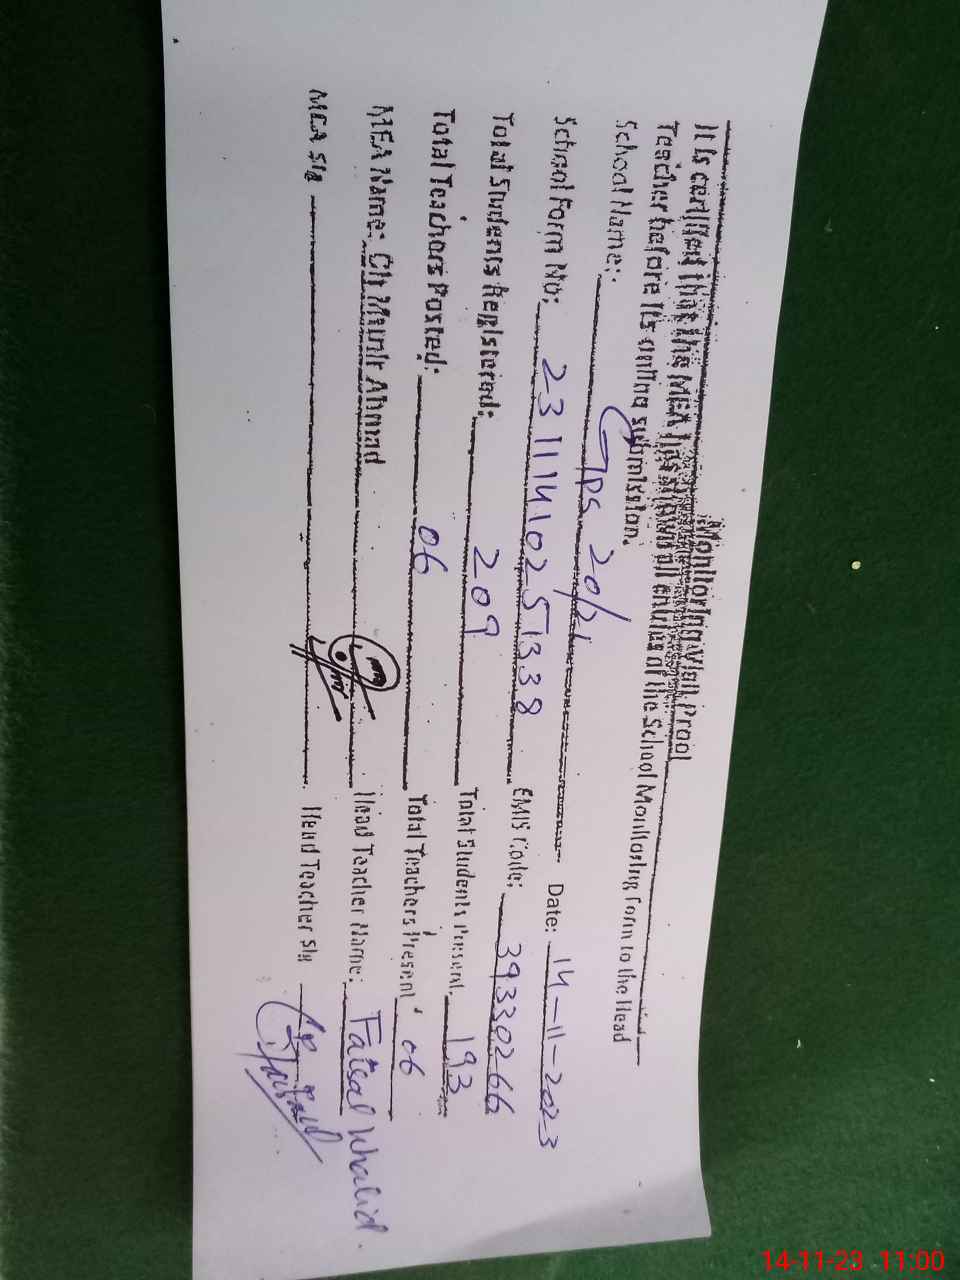 Monitoring Visit Proof
It is certified that the MEA has shown all entries of the School Monitoring Form to the Head
Teacher before its online submission.
School Name: GPS 20/2L Date: 14-11-2023
School Form No: 23111410251338 EMIS Code: 39330266
Total Students Registered: 209 Total Students Present. 193
Total Teachers Posted: 06 Total Teachers Present 06
MEA Name: Ch Munir Ahmad Head Teacher Name: Faisal Khalid.
MEA Sig Head Teacher Sig
14-11-23 11:00